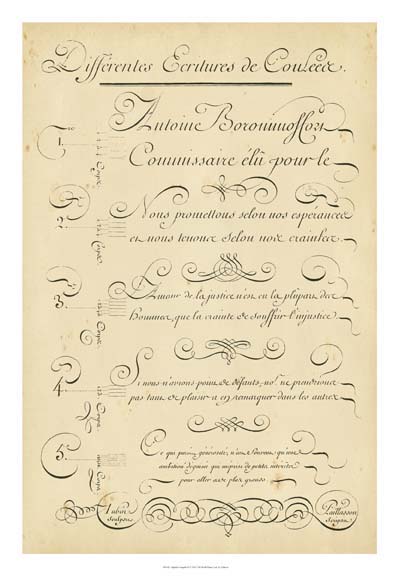 Différentes Ecritures de Coulées.
1.re
Antoine
Commissaire élû pour le
2.e
Nous promettons selon nos espérances
et nous tenons selon nos craintes
3.e
Amour de la justice n'est en la plûpart des
hommes, que la crainte de souffrir l'injustice
4.e
Si nous n'avions point de défauts, no.s ne prendrions
pas tant de plaisir a en remarquer dans les autres
5.e
Ce qui paroit générosité, n'est souvent qu'une
ambition déguisée qui méprise de petits interêts
pour aller a de plus grands
Aubin
Sculpsit
Paillasson
Scripsit